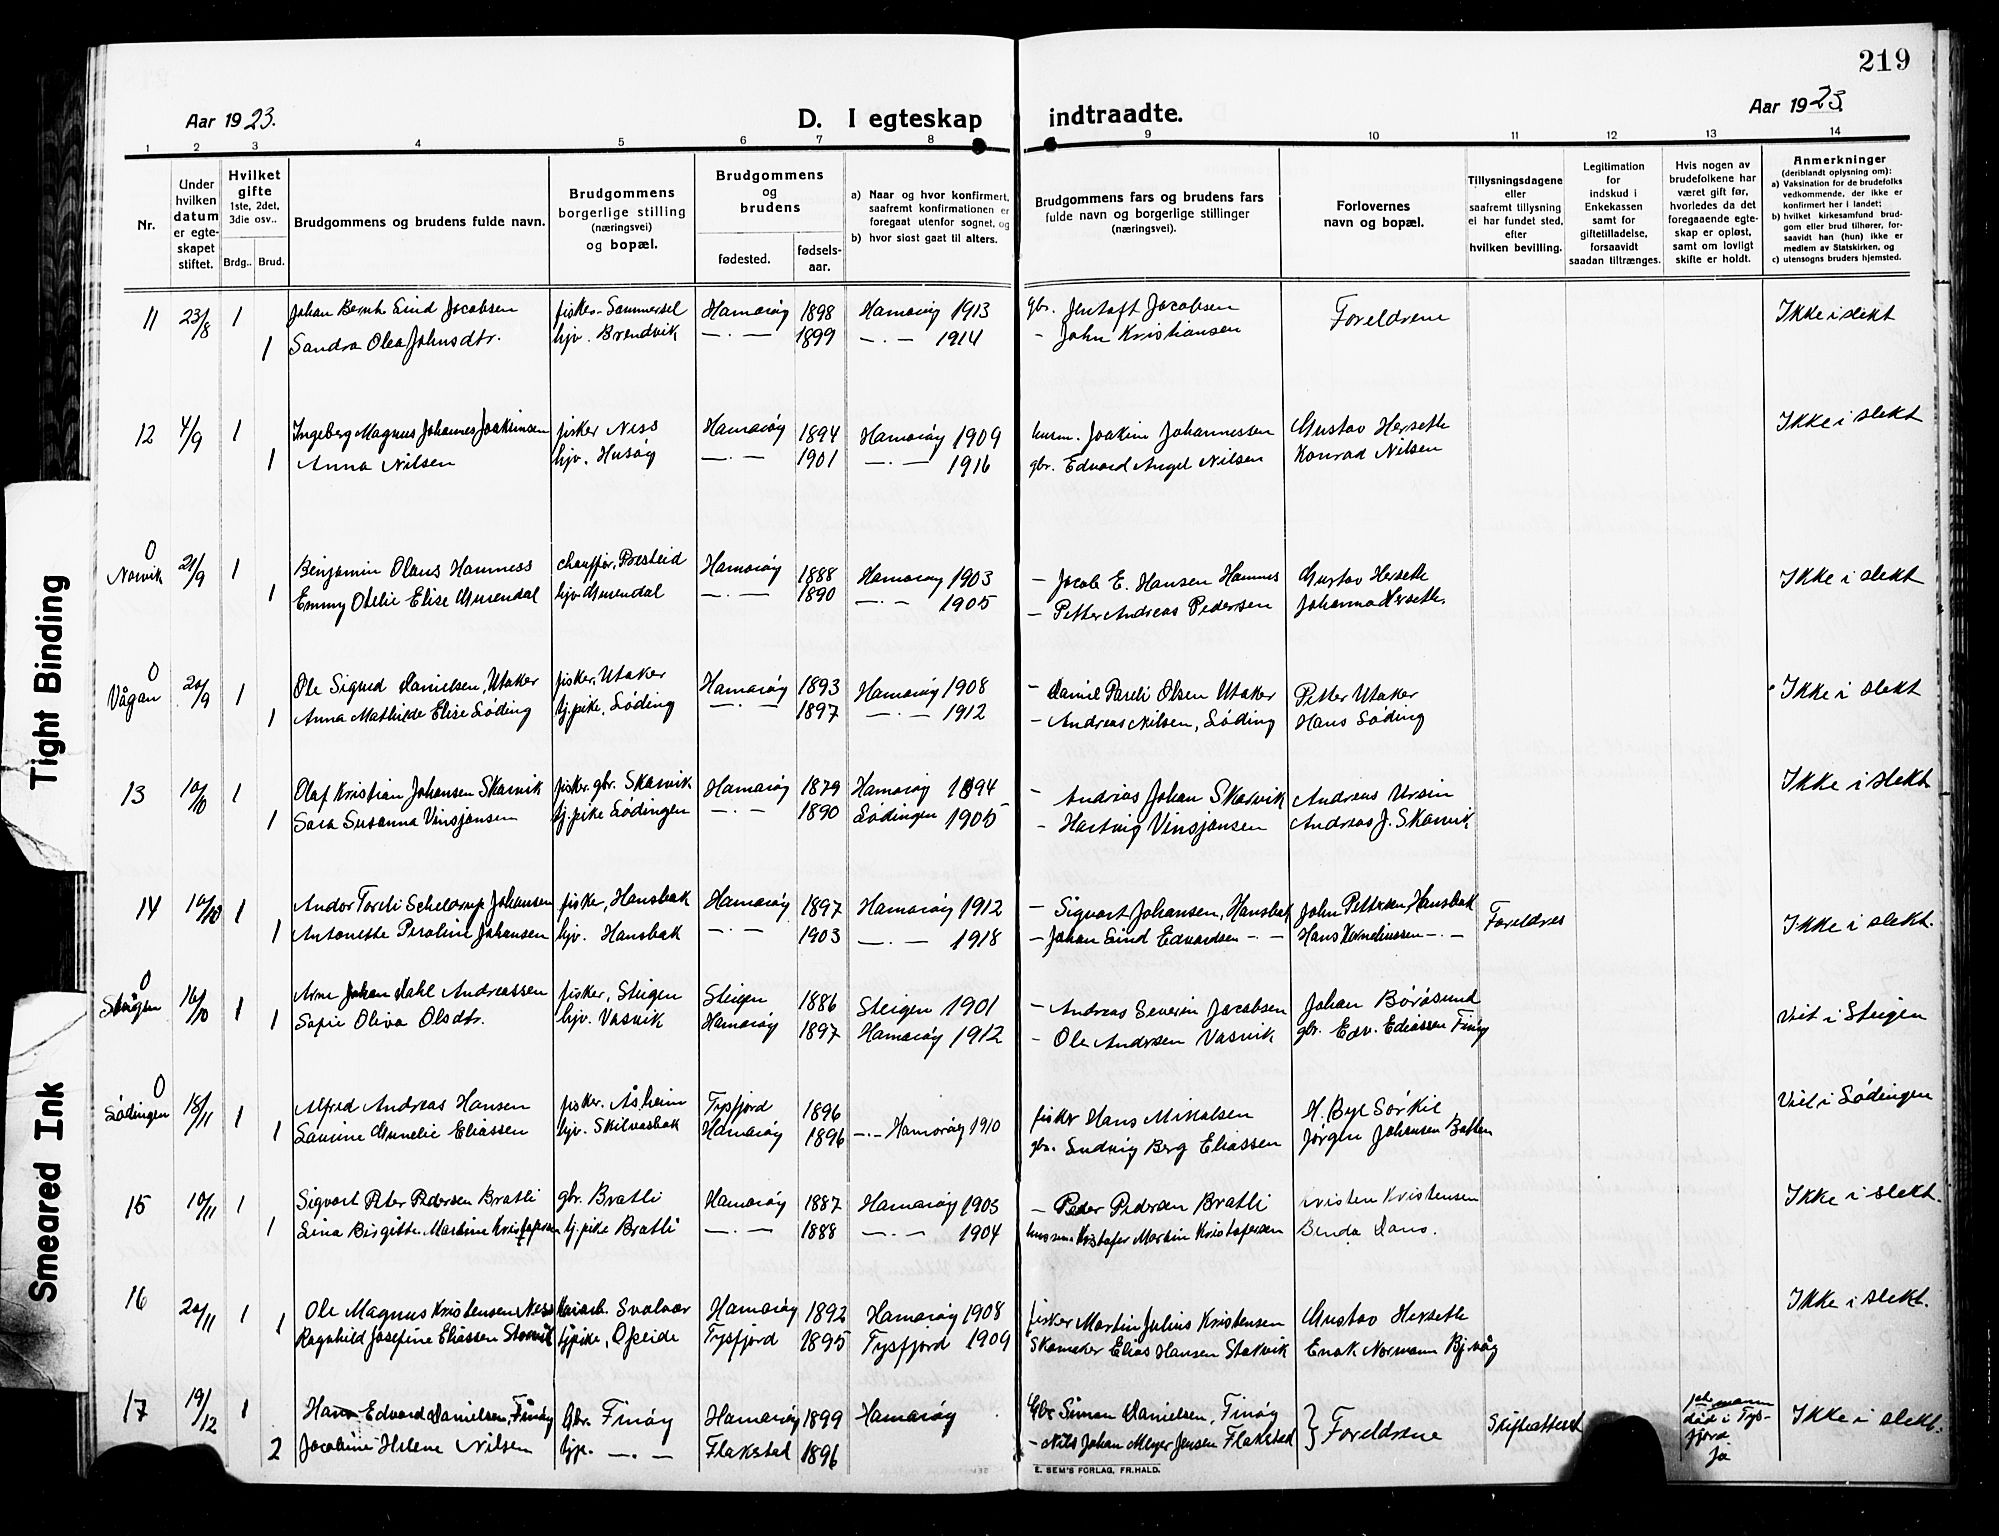 219
Aar 1923.
D. I egteskap indtraadte.
Aar 1923.
1 2 3 4 5 6 7 8 9 10 11 12 13 14
Nr.
Under hvilken datum er egteskapet stiftet.
Hvilket gifte 1ste, 2det, 3die osv..
Brdg.. Brud.
Brudgommens og brudens fulde navn.
Brudgommens borgerlige stilling (næringsvei) og bopæl.
Brudgommens og brudens
fødested. fødselsaar.
a) Naar og hvor konfirmert, saafremt konfirmationen er foregaat utenfor sognet, og
b) hvor sidst gaat til alters.
Brudgommens fars og brudens fars fulde navn og borgerlige stillinger (næringsvei).
Forlovernes navn og bopæl.
Tillysningsdagene eller saafremt tillysning ei har fundet sted, efter hvilken bevilling.
Legitimation for indskud i Enkekassen samt for giftetilladelse, forsaavidt saadan tiltrænges.
Hvis nogen av brudefolkene har været gift før, hvorledes da det foregaaende egteskap er opløst, samt om lovligt skifte er holdt.
Anmerkninger (deriblandt oplysning om):
a) Vaksination for de brudefolks vedkommende, der ikke er konfirmert her i landet;
b) hvilket kirkesamfund brudgom eller brud tilhører, forsaavidt han (hun) ikke er medlem av Statskirken, og
c) utensogns bruders hjemsted.
11 23/8 1 Johan Bernh Eind Jacobsen fisker Sommersel Hamarøy 1898 Hamarøy 1913 gbr. Jentoft Jacobsen Foreldrene Ikke i slekt
1 Sandra Olea Johnsdtr. hjv. Brendvik —.— 1899 —.— 1914 — John Kristiansen
12 4/9 1 Ingeberg Magnus Johannes Joakimsen fisker Ness Hamarøy 1894 Hamarøy 1909 husm. Joakim Johannessen Gustav Herseth Ikke i slekt
1 Anna Nilsen hjv. Husøy —.— 1901 —.— 1916 gbr. Edvard Angel Nilsen Konrad Nilsen
0 Narvik 21/9 1 Benjamin Olaus Hamness chauffør, Presteid Hamarøy 1888 Hamarøy 1903 — Jacob E. Hansen Hamnes Gustav Herseth Ikke i slekt
1 Emmy Otelie Elise Gurendal hjv Gurendal —.— 1890 —.— 1905 — Petter Andreas Pedersen Johanna Herseth.
0 Vågan 20/9 1 Ole Sigurd Danielsen, Utaker fisker, Utaker Hamarøy 1893 Hamarøy 1908 — Daniel Pareli Olsen Utaker Petter Utaker Ikke i slekt
1 Anna Mathilde Elise Løding tj.pike, Løding —.— 1897 —.— 1912 — Andreas Nilsen, Løding Hans Løding
13 10/10 1 Olaf Kristian Johansen Skarvik fisker gbr. Skarvik Hamarøy 1879 Hamarøy 1894 — Andreas Johan Skarvik Andreas Ursin Ikke i slekt
1 Sara Susanna Vinsjansen tj.pike Lødingen —.— 1890 Lødingen 1905 — Hartvig Vinsjansen Andreas J. Skarvik
14 10/10 1 Andor Toreli Schelderup Johansen fisker, Hansbak Hamarøy 1897 Hamarøy 1912 — Sigvart Johansen, Hansbak John Pettersen, Hansbak Foreldres Ikke i slekt.
1 Antonette Peroline Johansen hjv. Hansbak —.— 1903 —.— 1918 — Johan Eind Edvardsen —.— Hans Korneliussen —.—
0 Steigen 16/10 1 Arne Johan Dahl Andreassen fisker, Steigen Steigen 1886 Steigen 1901 — Andreas Severin Jacobsen Johan Børøsund Viet i Steigen
1 Sofie Oliva Olsdtr. hjv. Vasvik Hamarøy 1897 Hamarøy 1912 — Ole Andersen Vasvik gbr. Edv. Ediassen Finøy
0 Lødingen 18/11 1 Alfred Andreas Hansen fisker. Åsheim Tysfjord 1896 fisker Hans Mikalsen H. Bye Sørkil Viet i Lødingen
1 Laurine Gunelie Eliassen hjv. Skilvasbak Hamarøy 1896 —.— Hamarøy 1910 gbr. Ludvig Berg Eliassen Jørgen Johansen Bakken
15 10/11 1 Sigvart Peter Pedersen Bratli gbr. Bratli Hamarøy 1887 Hamarøy 1903 — Peder Pedersen Bratli Kristen Kristensen Ikke i slekt.
1 Lina Birgitte Martine Kristofersen tj.pike Bratli —.— 1888 —.— 1904 husm. Kristofer Martin Kristofersen
16 20/11 1 Ole Magnus Kristensen Ness Svolvær Hamarøy 1892 Hamarøy 1908 fisker Martin Julius Kristensen Gustav Herseth Ikke i slekt.
1 Ragnhild Josefine Eliassen Storvik tjpike, Opeide Tysfjord 1895 Tysfjord 1909 Skomaker Elias Hansen Stokvik Enok Normann Bjnvåg
17 19/12 1 Hans Edvard Danielsen, Finøy Gbr. Finøy Hamarøy 1899 Hamarøy Gbr Simon Danielsen, Finøy } Foreldrene Skifteattest 1ste mann død i Tysfjord ja Ikke i slekt.
2 Jacobine Helene Nilsen tjp. —.— Flakstad 1896 — Nils Johan Meyer Jensen Flakstad
E. SEM'S FORLAG, FR.HALD.
Tight Binding
Smeared Ink